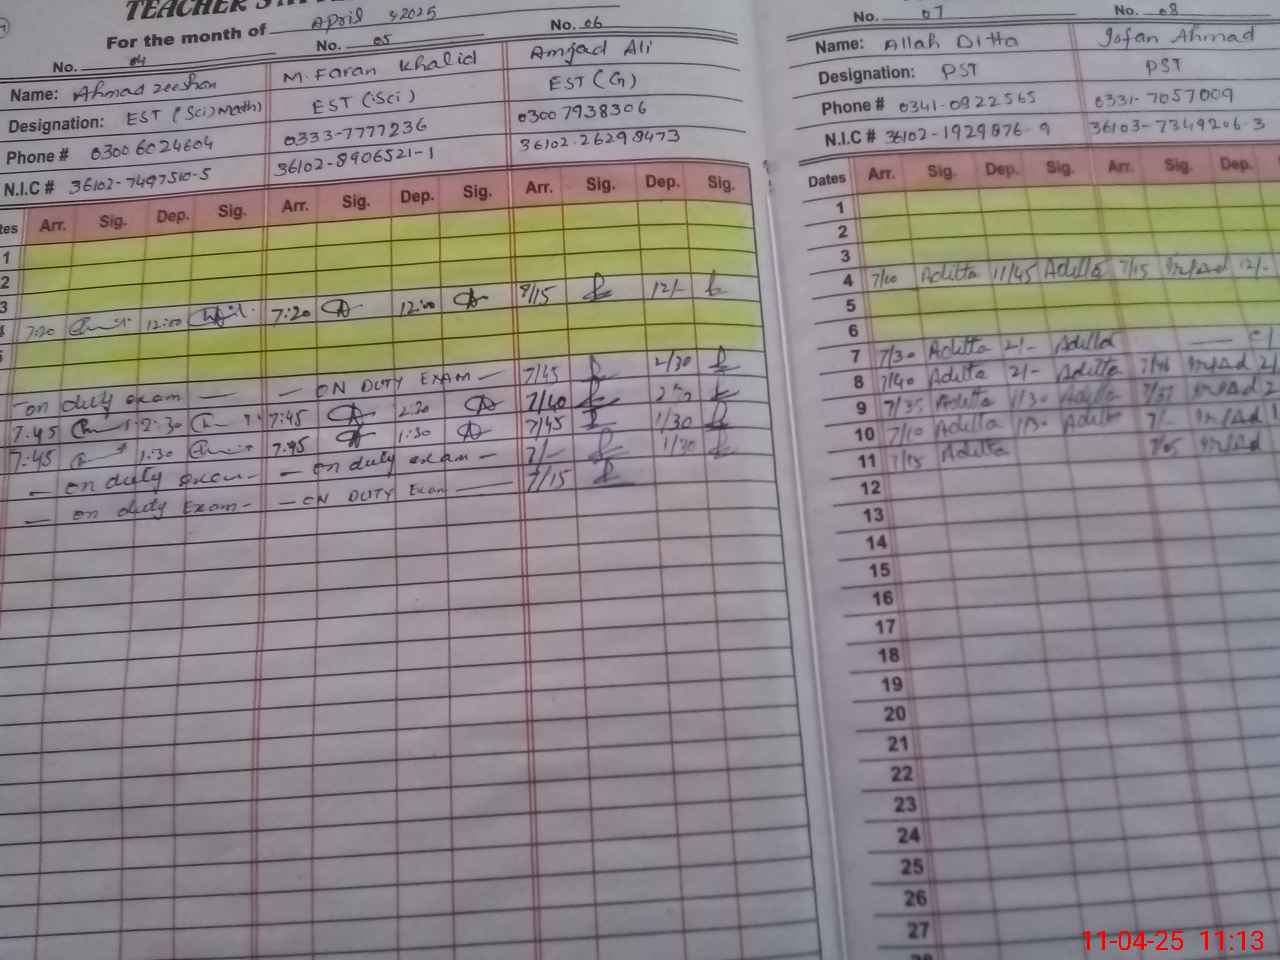 For the month of April 2025
No. 04
No. 05
No. 06
Name: Ahmad Zeeshan
M. Faran Khalid
Amjad Ali
Designation: EST (Sci) Math)
EST (Sci)
EST (G)
Phone # 0300 6024604
0333-7777236
0300 7938306
N.I.C # 36102-7497510-5
36102-8906521-1
36102-26298473
Arr. Sig. Dep. Sig. Arr. Sig. Dep. Sig. Arr. Sig. Dep. Sig.
1
2
3
7:20 12:00 7:20 12:00 12/-
on duty exam — — ON DUTY EXAM — 7/45 2/30
7:45 2:30 7:45 2:30 7/40
7:45 1:30 7:45 1:30 7/45 1/30
— on duty exam - — on duty exam — 7/- 1/30
— on duty Exam - — ON DUTY Exam — 7/15
No. 07
No. 08
Name: Allah Ditta
Irfan Ahmad
Designation: PST
PST
Phone # 0341-0922565
0331-7057009
N.I.C # 36102-1929876-9
36103-7349206-3
Dates Arr. Sig. Dep. Sig. Arr. Sig. Dep.
1
2
3
4 7/10 Aditta 11/45 Aditta 7/15 Irfad 12/-
5
6
7 7/30 Aditta 2/- Aditta —
8 7/40 Aditta 2/- Aditta Irfad
9 7/35 Aditta 1/30 Aditta Irfad
10 7/10 Aditta 1/30 Aditta 7/- Irfad
11 7/15 Aditta 7/05 Irfad
12
13
14
15
16
17
18
19
20
21
22
23
24
25
26
27
11-04-25 11:13